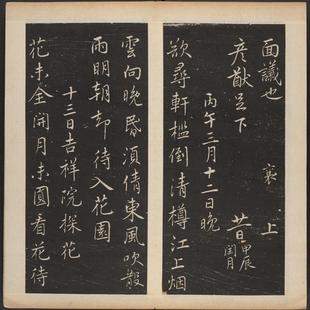 面議也
襄上
彥猷足下
甲辰
閏月
丙午三月十二日晚
欲尋軒檻倒清樽江上烟
雲向晚昏須倩東風吹散
雨明朝却待入花園
十三日吉祥院探花
花未全開月未圓看花待